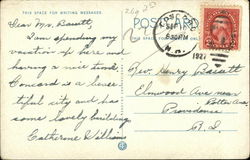 THIS SPACE FOR WRITING MESSAGES
POST
Dear Mr. Bassett
I am spending my
vacation up here and
having a nice time.
Concord is a beau-
tiful city and has
some lovely buildings.
Catherine Williams
6:30 PM
1927
N.H.
Rev. Henry Bassett
Elmwood Ave near
Potters Ave
Providence
R.I.